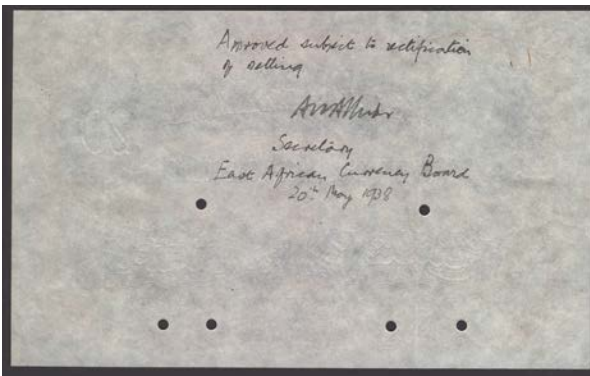 Approved subject to rectification
of setting
Secretary
East African Currency Board
20th May 1938